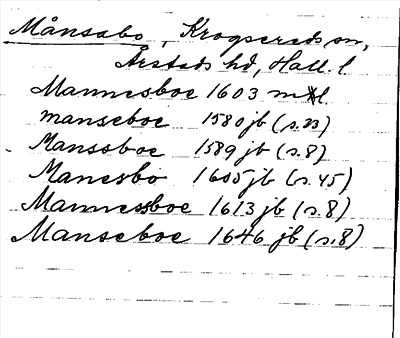 Månsabo, Krogsereds sn,
Årstads hd, Hall. l.
Mannesboe 1603 ml
manseboe 1580 jb (s. 23)
Mansboe 1589 jb (s. 8)
Manesbo 1605 jb (s. 45)
Mannesboe 1613 jb (s. 8)
Manseboe 1646 jb (s. 8)